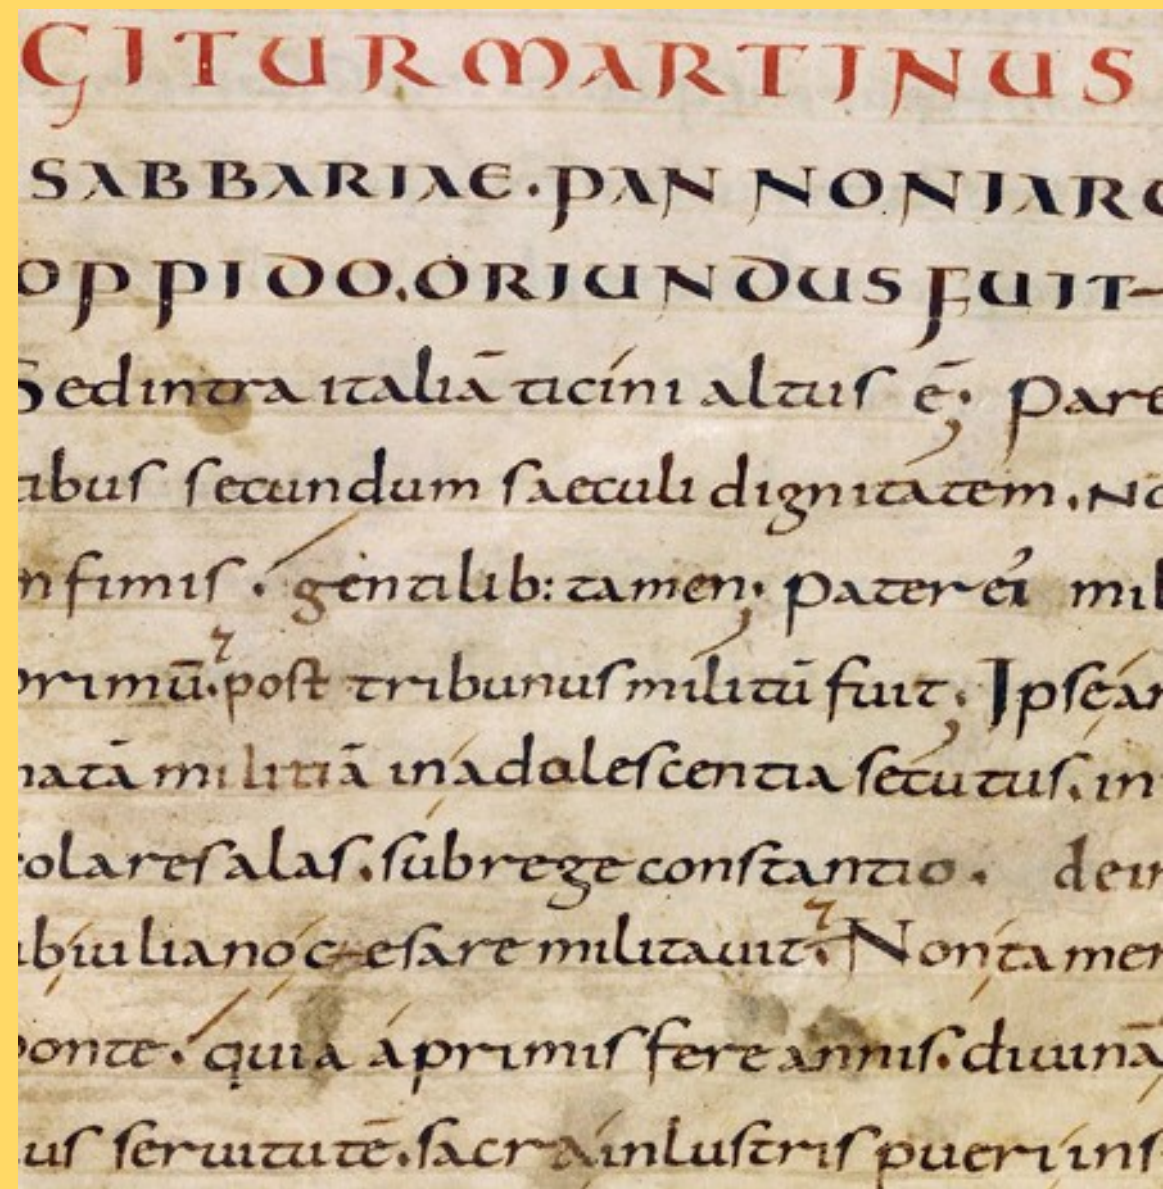 GITUR MARTINUS
SABBARIAE. PANNONIARU
OPPIDO. ORIUNDUS FUIT
Sed intra italiā ticini altus ē; Pare
tibus secundum saeculi dignitatem. No
nfimis. gentilib: tamen; pater ei mil
primū. post tribunus militū fuit; Ipse ar
matā militiā in adolescentia secutus. in
colares alas. sub rege constantio. dein
ub iuliano cęsare militauit. Non tamen
ponte. quia a primis fere annis. diuinā
us seruitutē. sacra inlustris pueri ins